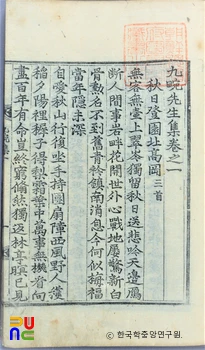 九畹先生集卷之一
秋日登園址高岡 三首
無客無壺上翠岑獨留秋日送悲吟天邊鴈
斷人間事岩畔花開世外心戰地屢驚新白
骨勲名不到舊靑衿鎭南消息今何似梅福
當年隱未深
自愛秋山行復坐手持團扇障西風野人護
稻夕陽裡稚子得梨霜葉中萬事無機看向
盡百年有命豈終窮翛然獨返林亭暝已見
© 한국학중앙연구원.